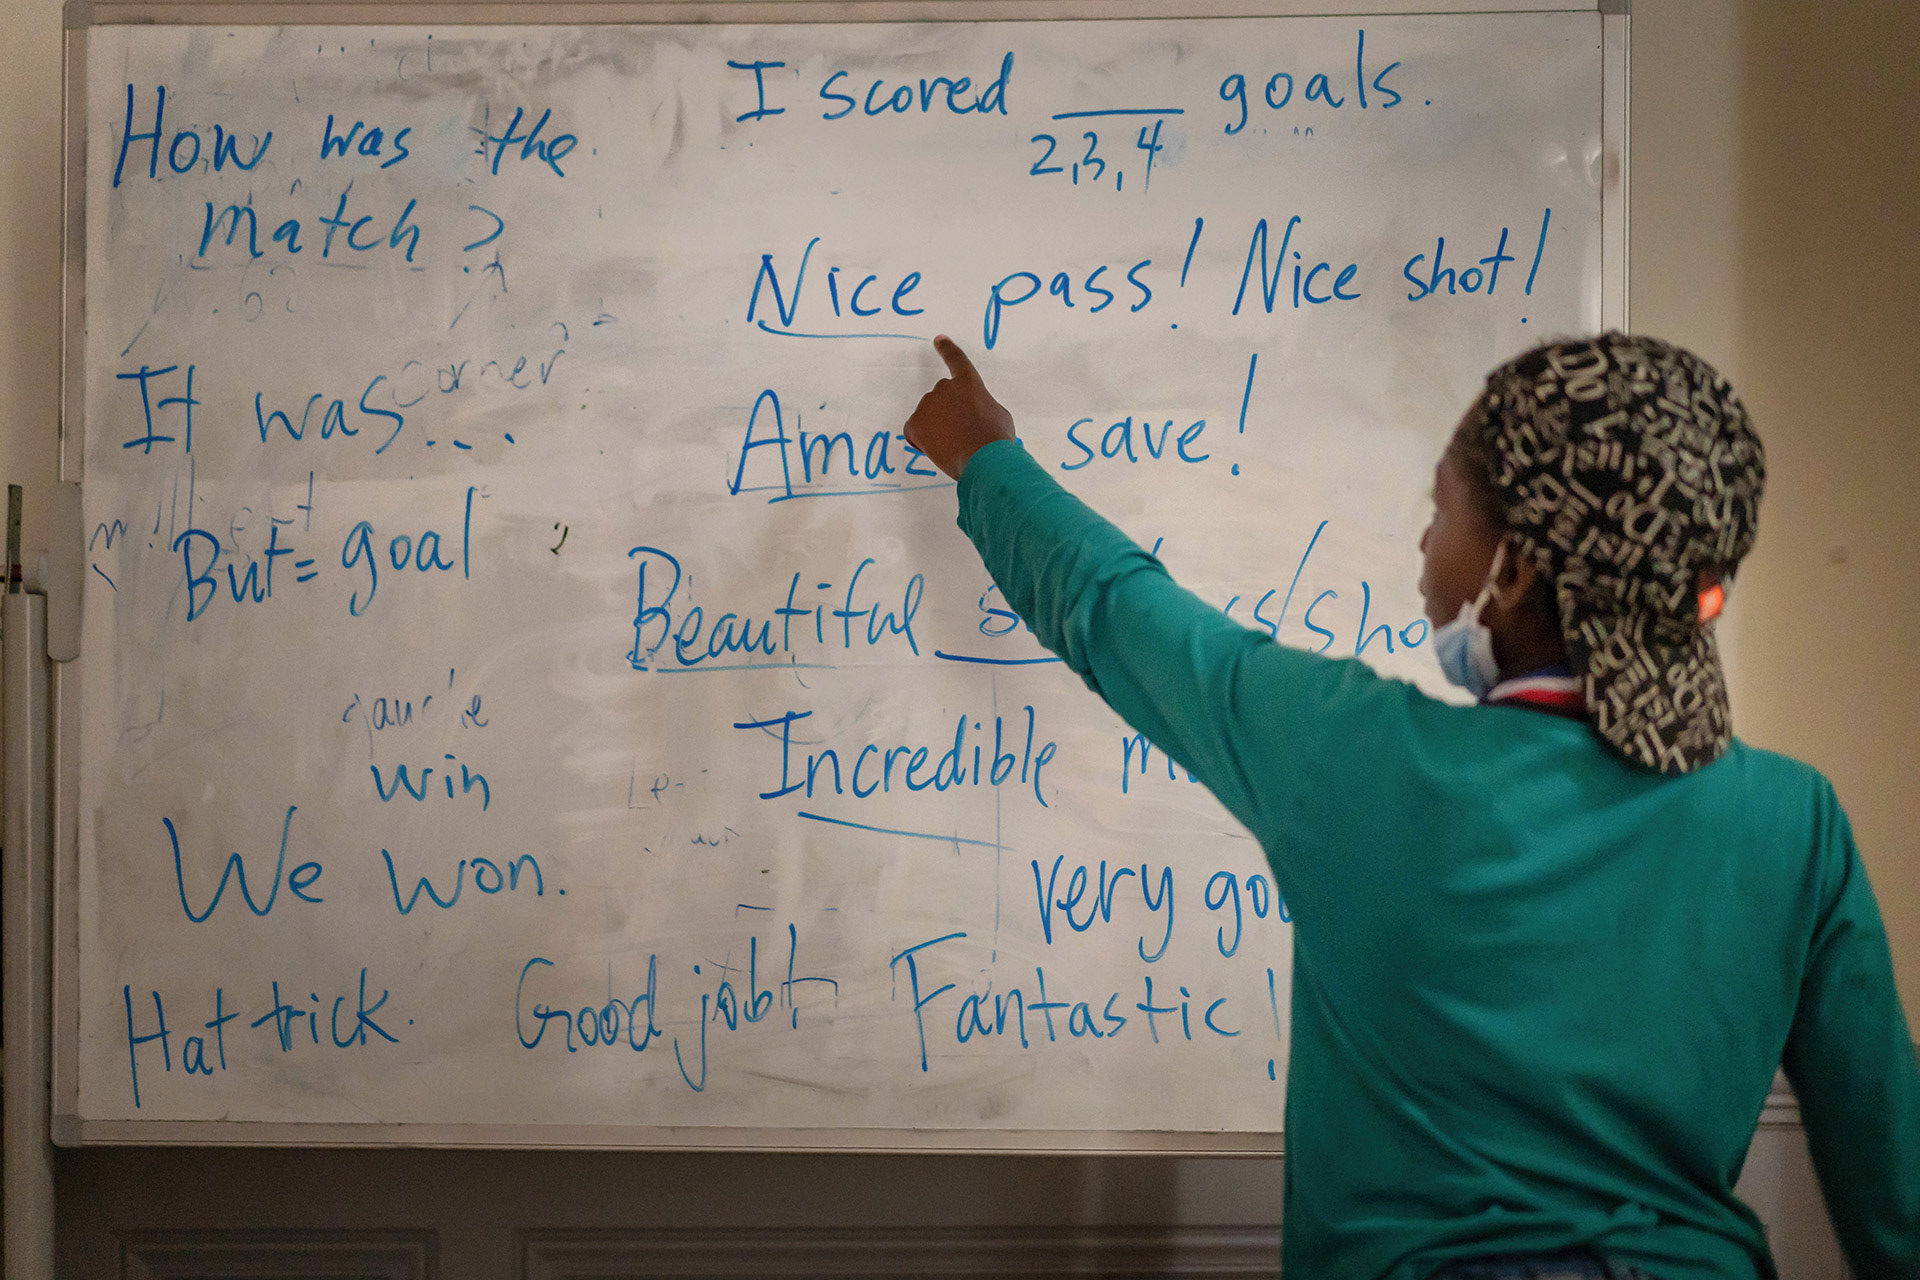 How was the
match?
It was...
corner
But = goal
win
We won.
Hat trick.
Good job!
Fantastic!
I scored ____ goals.
2,3,4
Nice pass! Nice shot!
save!
Beautiful
Incredible
very